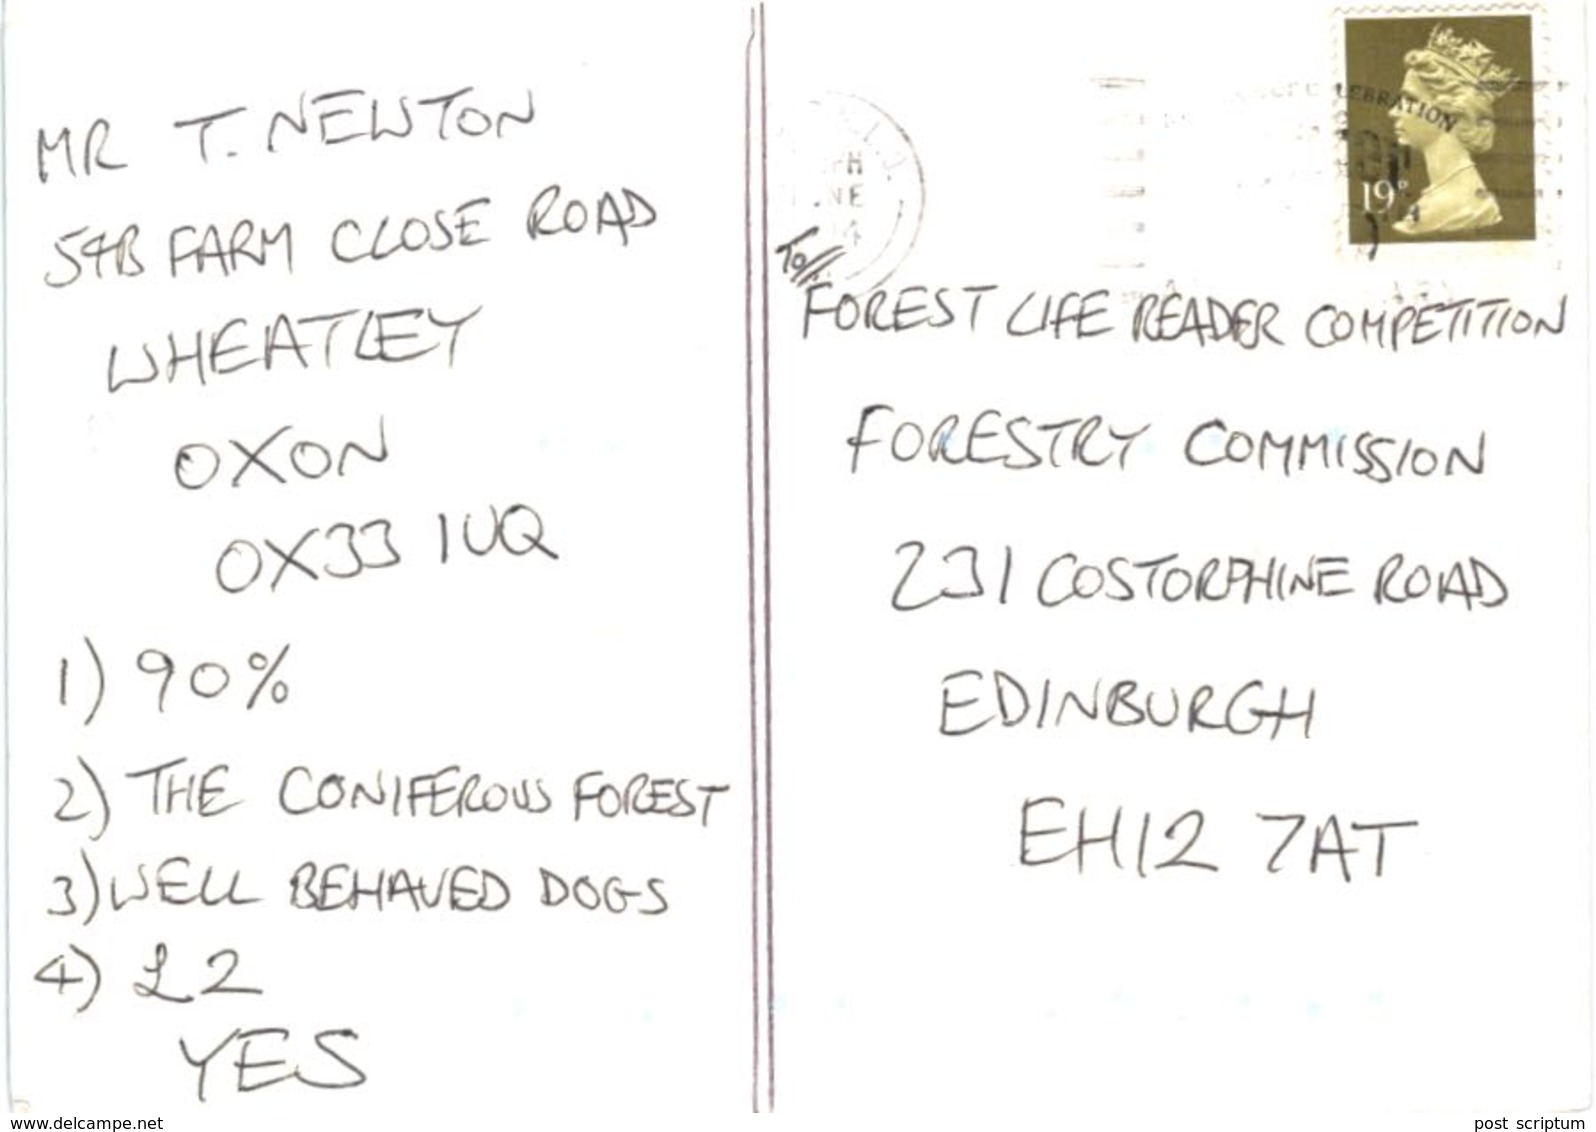 MR T. NEWTON
54B FARM CLOSE ROAD
WHEATLEY
OXON
OX33 1UQ
1) 90%
2) THE CONIFEROUS FOREST
3) WELL BEHAVED DOGS
4) £2
YES
19P
To//.
FOREST LIFE READER COMPETITION
FORESTRY COMMISSION
231 COSTORPHINE ROAD
EDINBURGH
EH12 7AT
www.delcampe.net
post scriptum